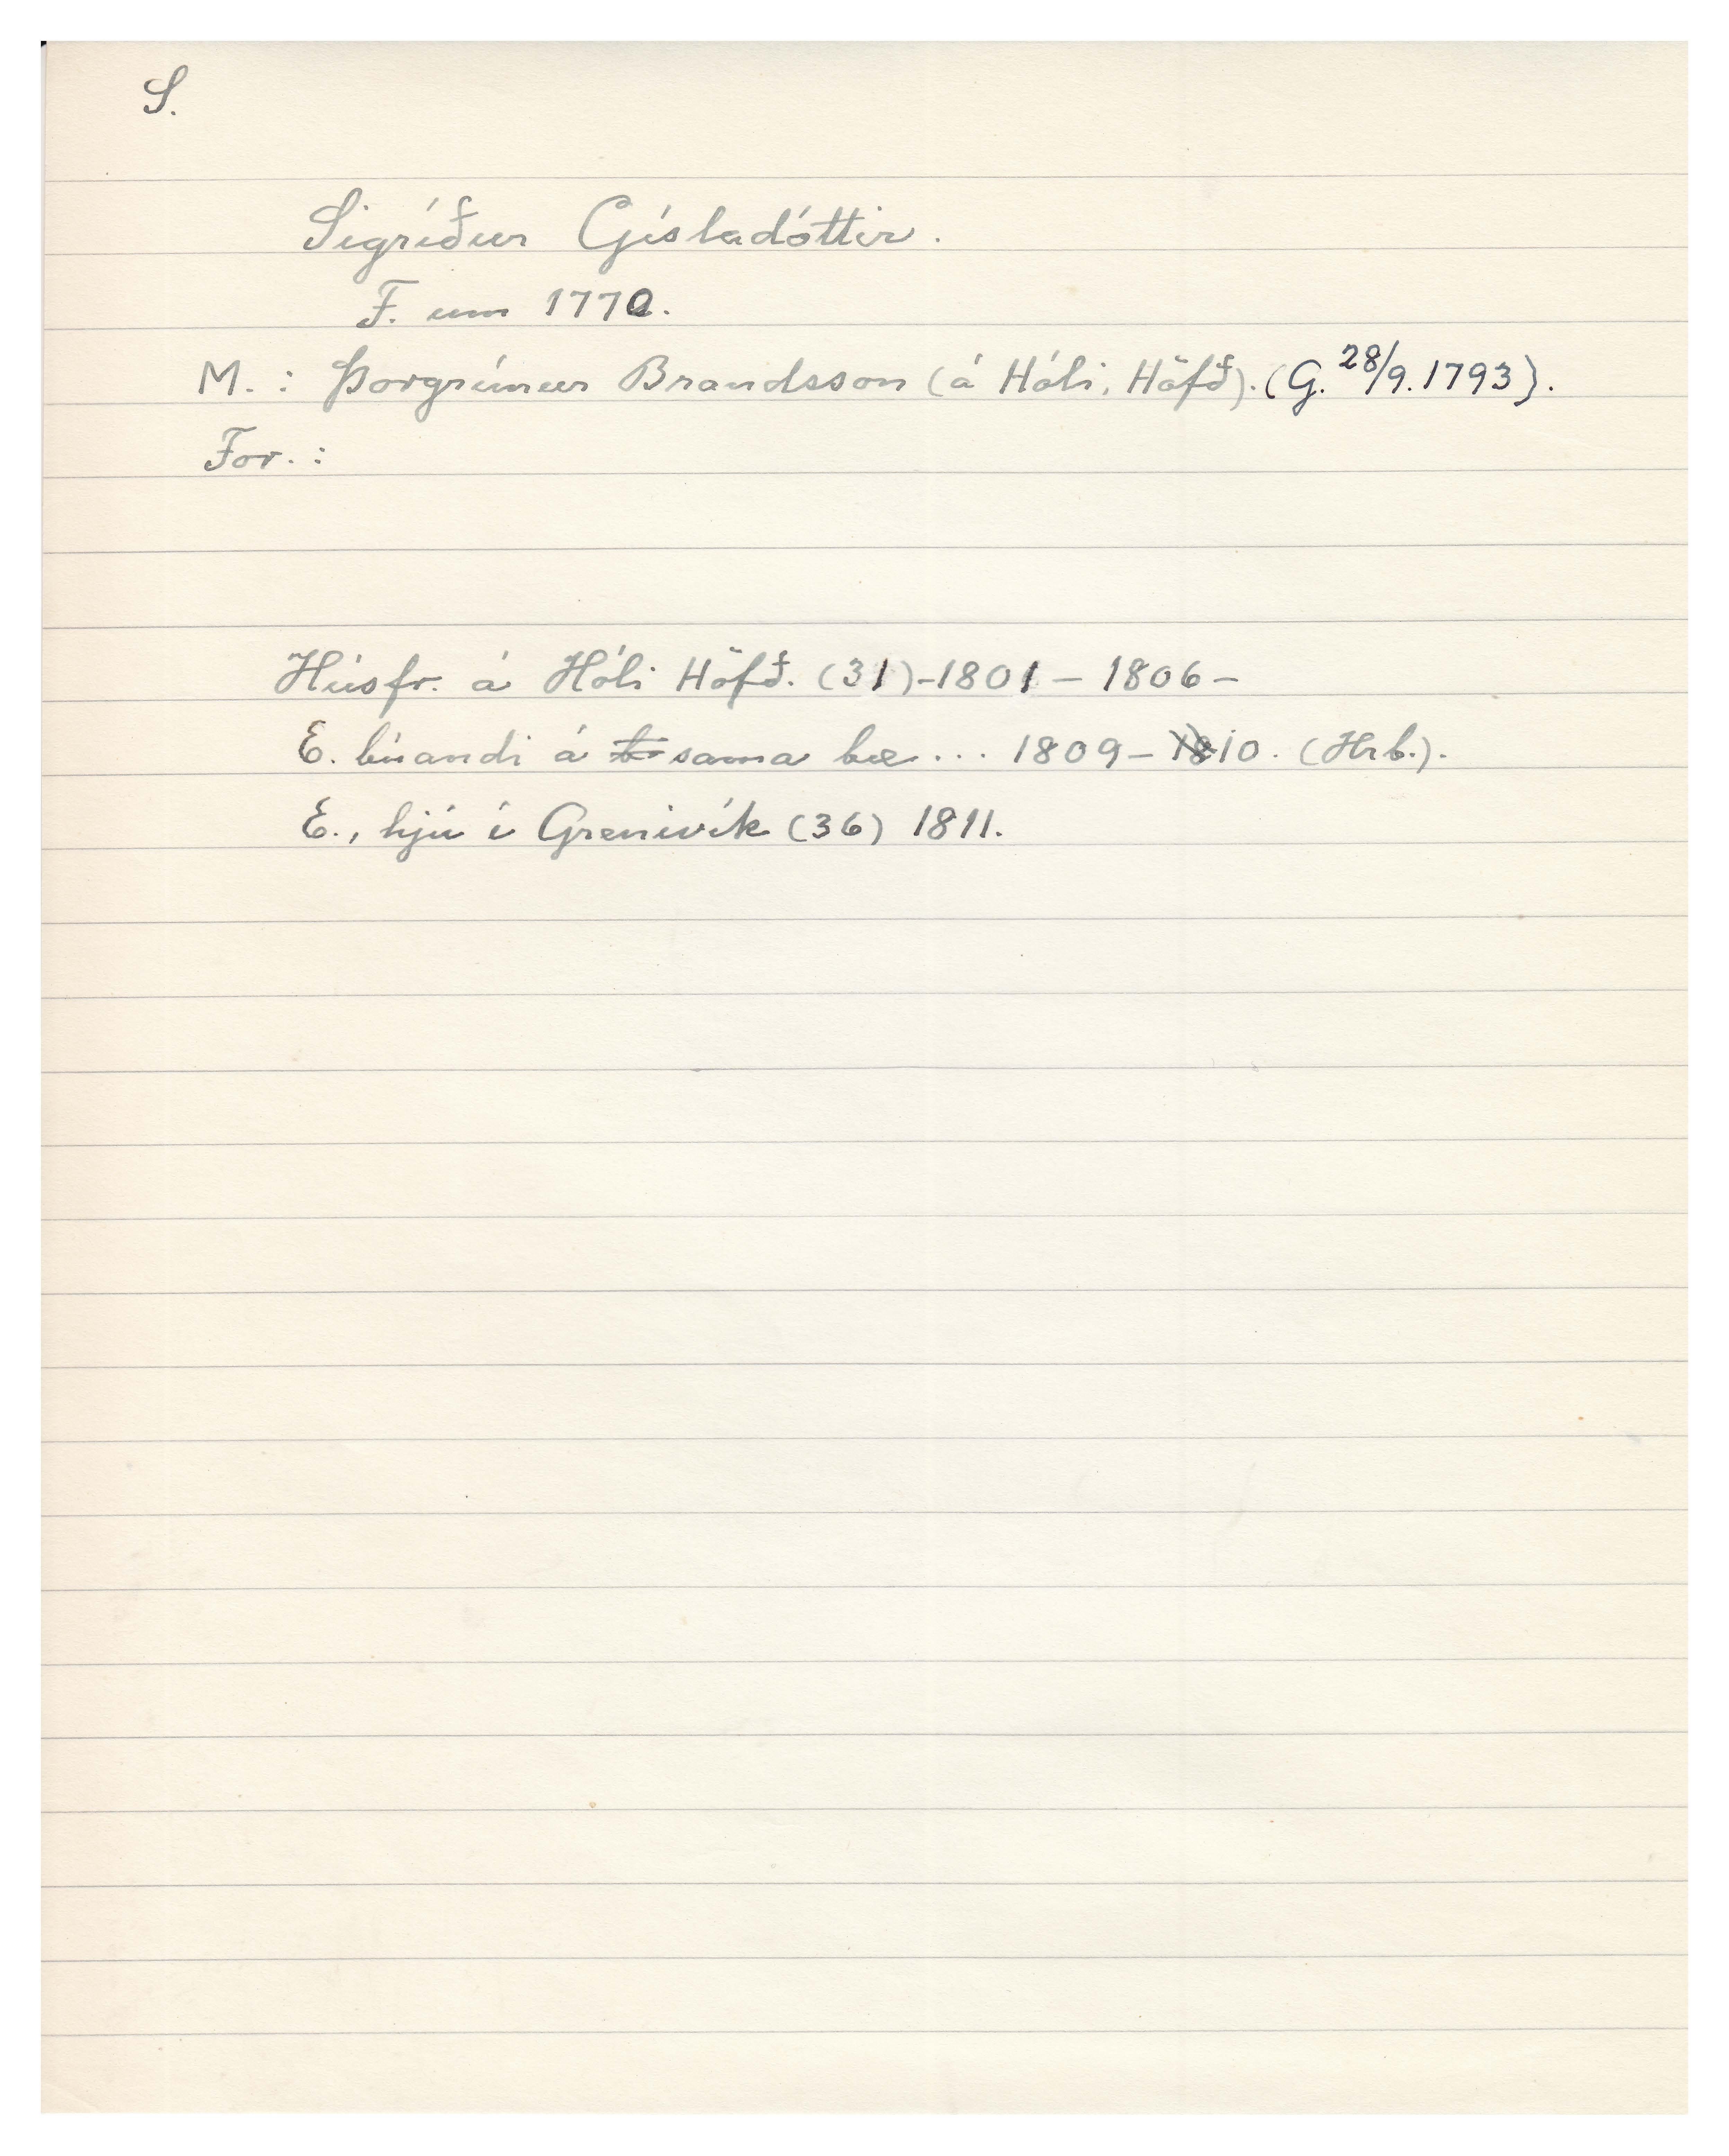 S.
Sigríður Gísladóttir.
F. um 1770.
M.: Þorgrímur Brandsson (á Hóli, Höfð). (G. 28/9. 1793).
For.:
Húsfr. á Hóli Höfð. (31) - 1801 - 1806 -
E. búandi á sama bæ ... 1809 - 10. (Hrb.).
E., hjú í Grenivík (36) 1811.